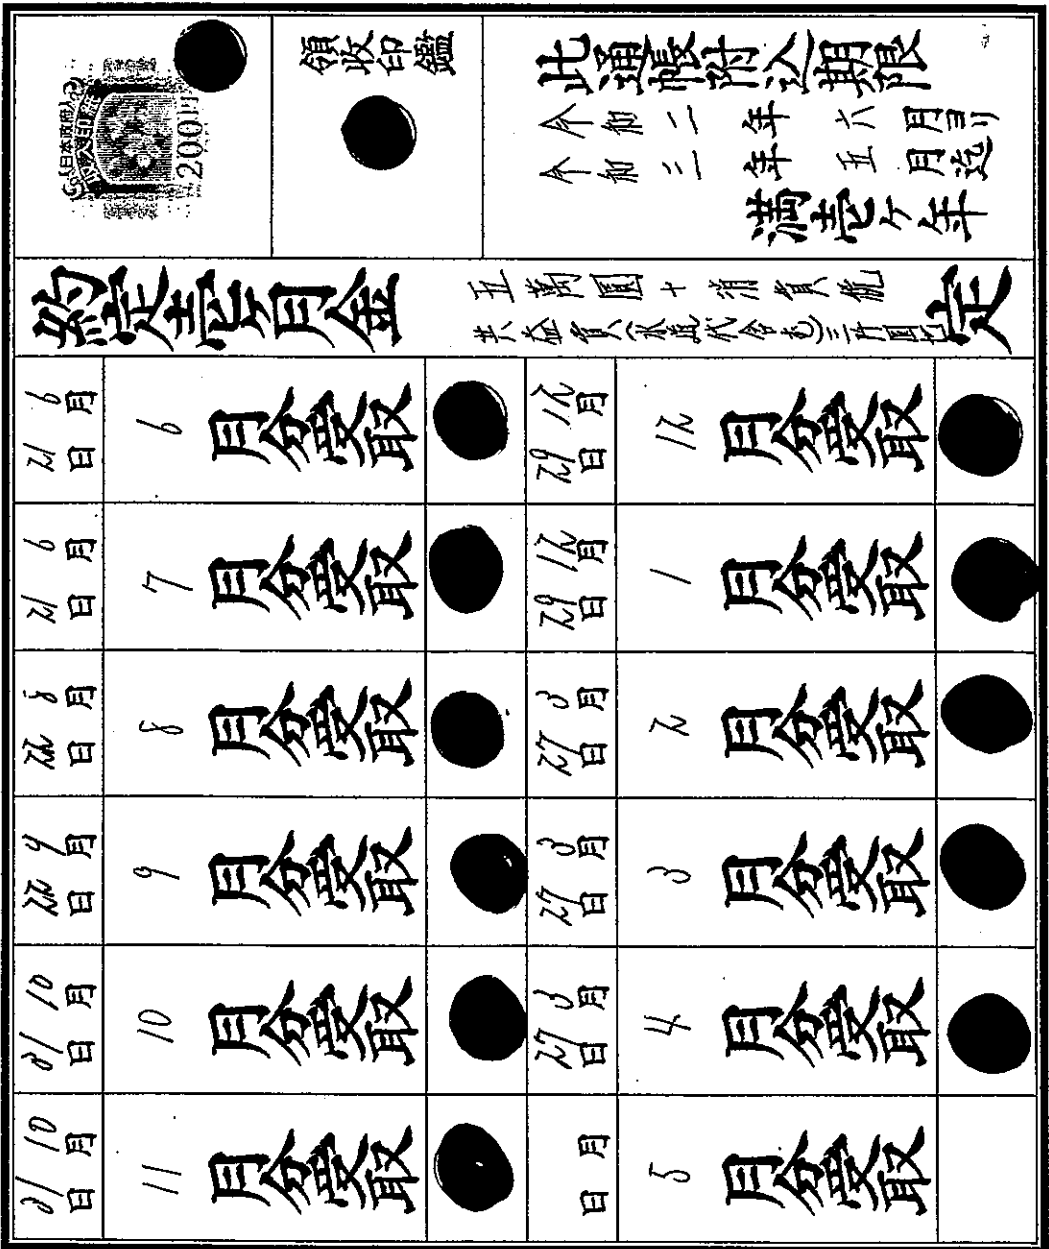 此通帳附込期限
令和二年六月ヨリ
令和三年五月迄
満壱ヶ年
領收印鑑
日本政府
収入印紙
200円
約定壱ヶ月金
五萬圓+消費税
共益費(水道代含む)三阡圓也
定
6月12日 6月分受取
6月12日 7月分受取
8月22日 8月分受取
9月22日 9月分受取
10月31日 10月分受取
10月31日 11月分受取
12月29日 12月分受取
12月29日 1月分受取
3月27日 2月分受取
3月27日 3月分受取
3月27日 4月分受取
月 日 5月分受取